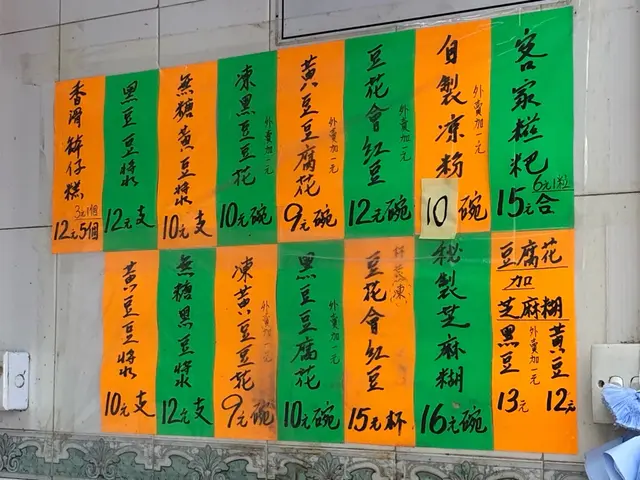 客家糍粑
6元1粒
15元合
自製凉粉
外賣加一元
10碗
豆花會紅豆
外賣加一元
12元碗
黃豆豆腐花
外賣加一元
9元碗
凍黑豆豆花
外賣加一元
10元碗
無糖黃豆豆漿
10元支
黑豆豆漿
12元支
香滑缽仔糕
3元1個
12元5個
豆腐花
加
芝麻糊
黃豆
12元
外賣加一元
黑豆
13元
秘製芝麻糊
16元碗
豆花會紅豆
15元杯
黑豆豆腐花
外賣加一元
10元碗
凍黃豆豆花
外賣加一元
9元碗
無糖黑豆豆漿
12元支
黃豆豆漿
10元支